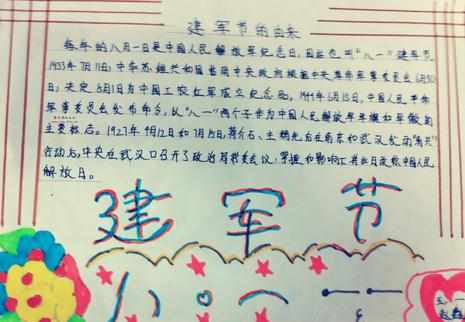 建军节的由来
每年的八月一日是中国人民解放军纪念日,因此也叫“八一”建军节
1933年7月11日,中华苏维共和国临时中央政府根据中央革命军事委员会6月30
日,决定8月1日为中国工农红军成立纪念日。1949年6月15日,中国人民革命
军事委员会发布命令,以“八一”两个字作为中国人民解放军军旗和军徽的
主要标志。1927年4月12日和7月15日,蒋介石、汪精卫在南京和武汉发动“清共”
行动后,中央在武汉口召开了政治局会议,
解放日。
建军节
八一